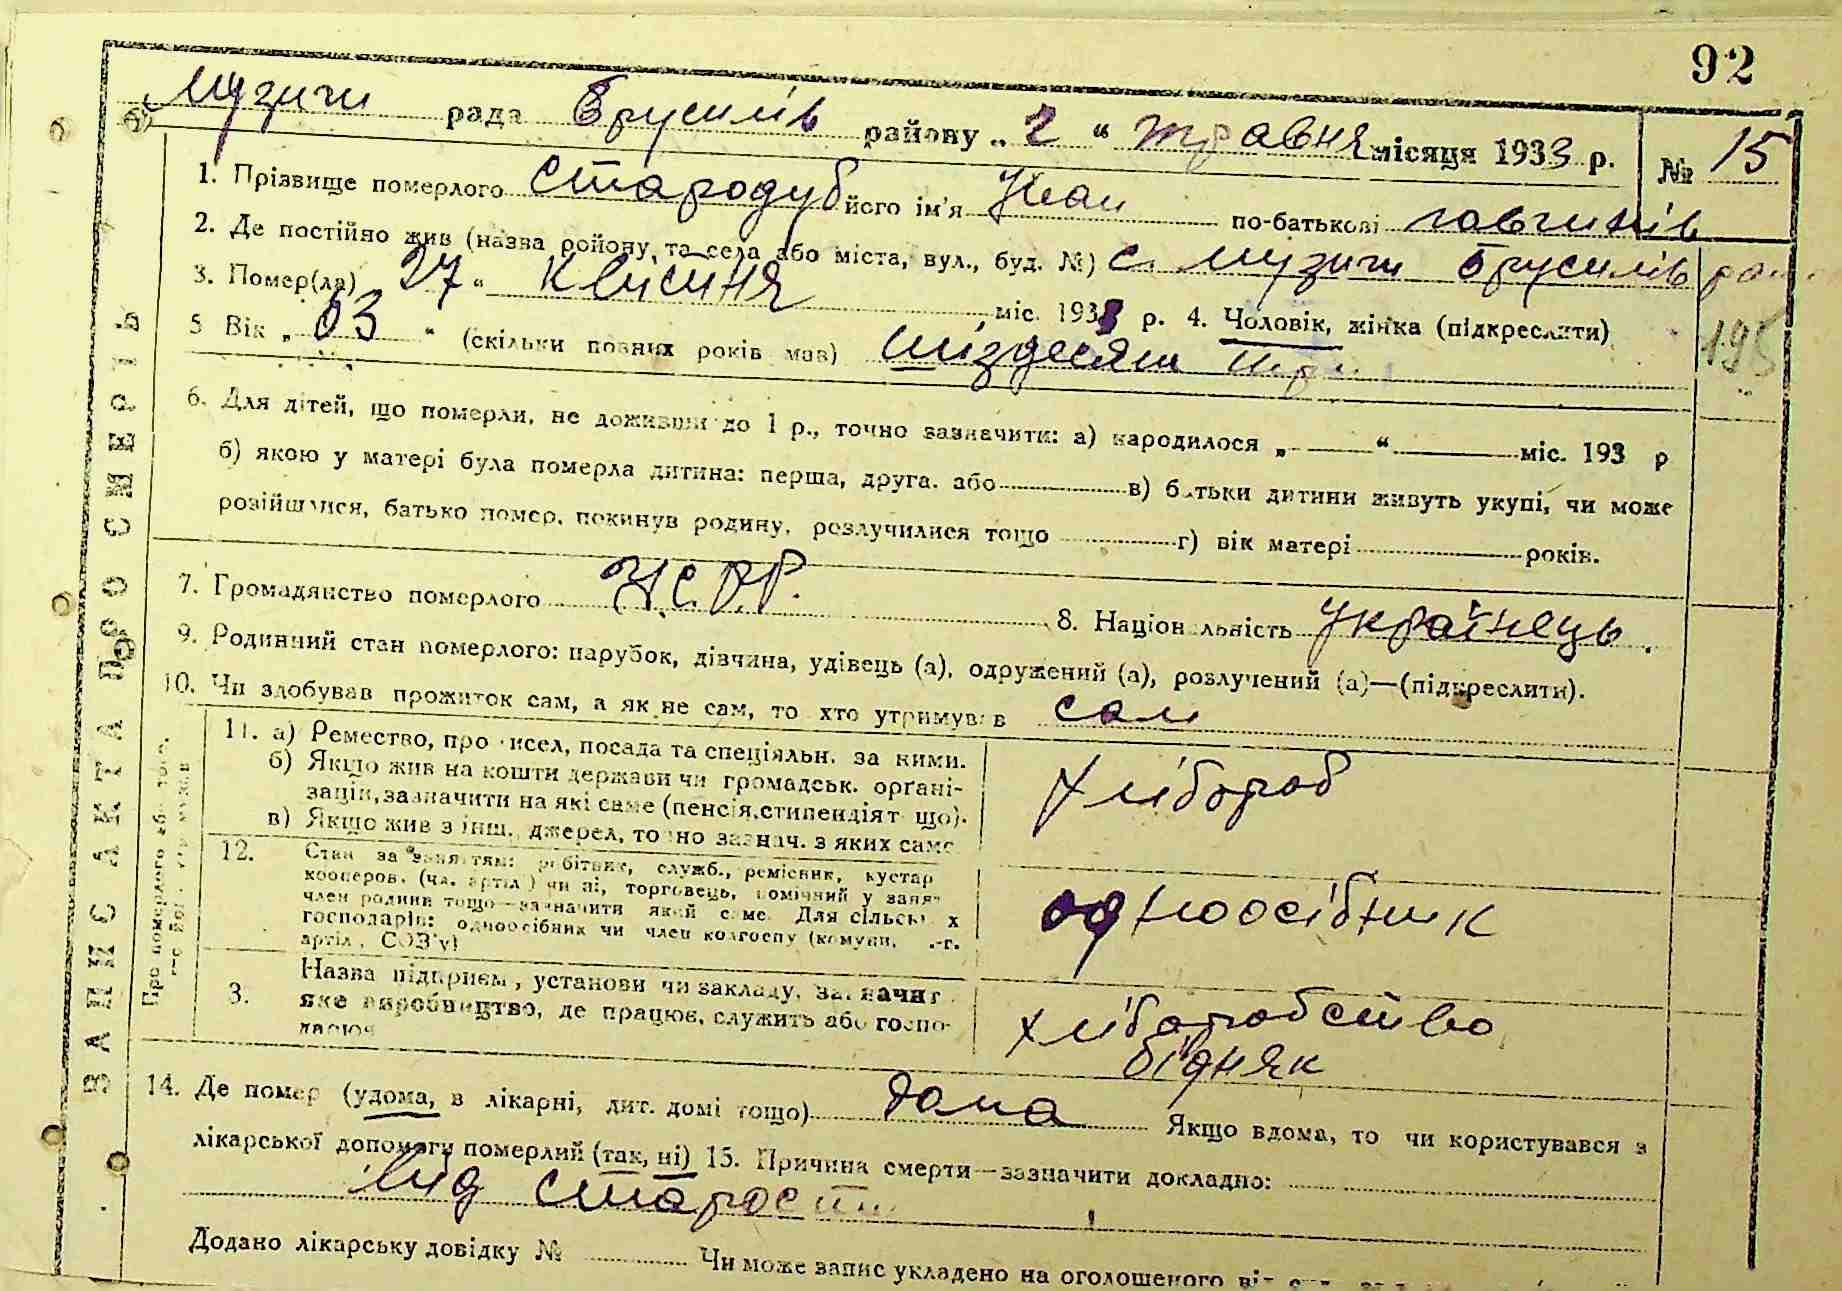 92
Музичи рада Брусилів району „2“ травня місяця 1933 р. № 15
1. Прізвище померлого Стародуб його ім'я Іван по-батькові
2. Де постійно жив (назва району, та села або міста, вул., буд. №) с. Музичи Брусилів рай
3. Помер(ла) 27 “ квитня міс. 1933 р. 4. Чоловік, жінка (підкреслити)
5 Вік „ 63 “ (скільки повних років мав) шіздесят три
195
6. Для дітей, що померли, не доживши до 1 р., точно зазначити: а) народилося „ “ міс. 193 р
б) якою у матері була померла дитина: перша, друга. або в) батьки дитини живуть укупі, чи може
розійшлися, батько помер, покинув родину, розлучилися тощо г) вік матері років.
7. Громадянство померлого У.С.Р.Р. 8. Національність українець.
9. Родинний стан померлого: парубок, дівчина, удівець (а), одружений (а), розлучений (а)—(підкреслити).
10. Чи здобував прожиток сам, а як не сам, то хто утримував сам
11. а) Ремество, промисел, посада та спеціяльн. за ними.
б) Якщо жив на кошти держави чи громадськ. органі-
зацій, зазначити на які саме (пенсія, стипендія т що).
в) Якщо жив з інш. джерел, точно зазнач. з яких саме
хлібороб
12. Стан за заняттям: робітник, служб., ремісник, кустар
кооперов. (чл. артіл ) чи ні, торговець, помічний у заня-
член родини тощо—зазначити який саме. Для сільськ х
господарів: одноосібник чи член колгоспу (комуни, .-г.
артіл , СОЗ'у)
одноосібник
3. Назва підприєм, установи чи закладу, зазначит
яке виробництво, де працює, служить або госпо-
дарює
хліборобство
бідняк
14. Де помер (удома, в лікарні, дит. домі тощо) дома Якщо вдома, то чи користувався з
лікарської допомоги померлий (так, ні) 15. Причина смерти—зазначити докладно:
від старости
Додано лікарську довідку № Чи може запис укладено на оголошеного
ЗАПИС АКТА ПРО СМЕРТЬ
Про померлого або того,